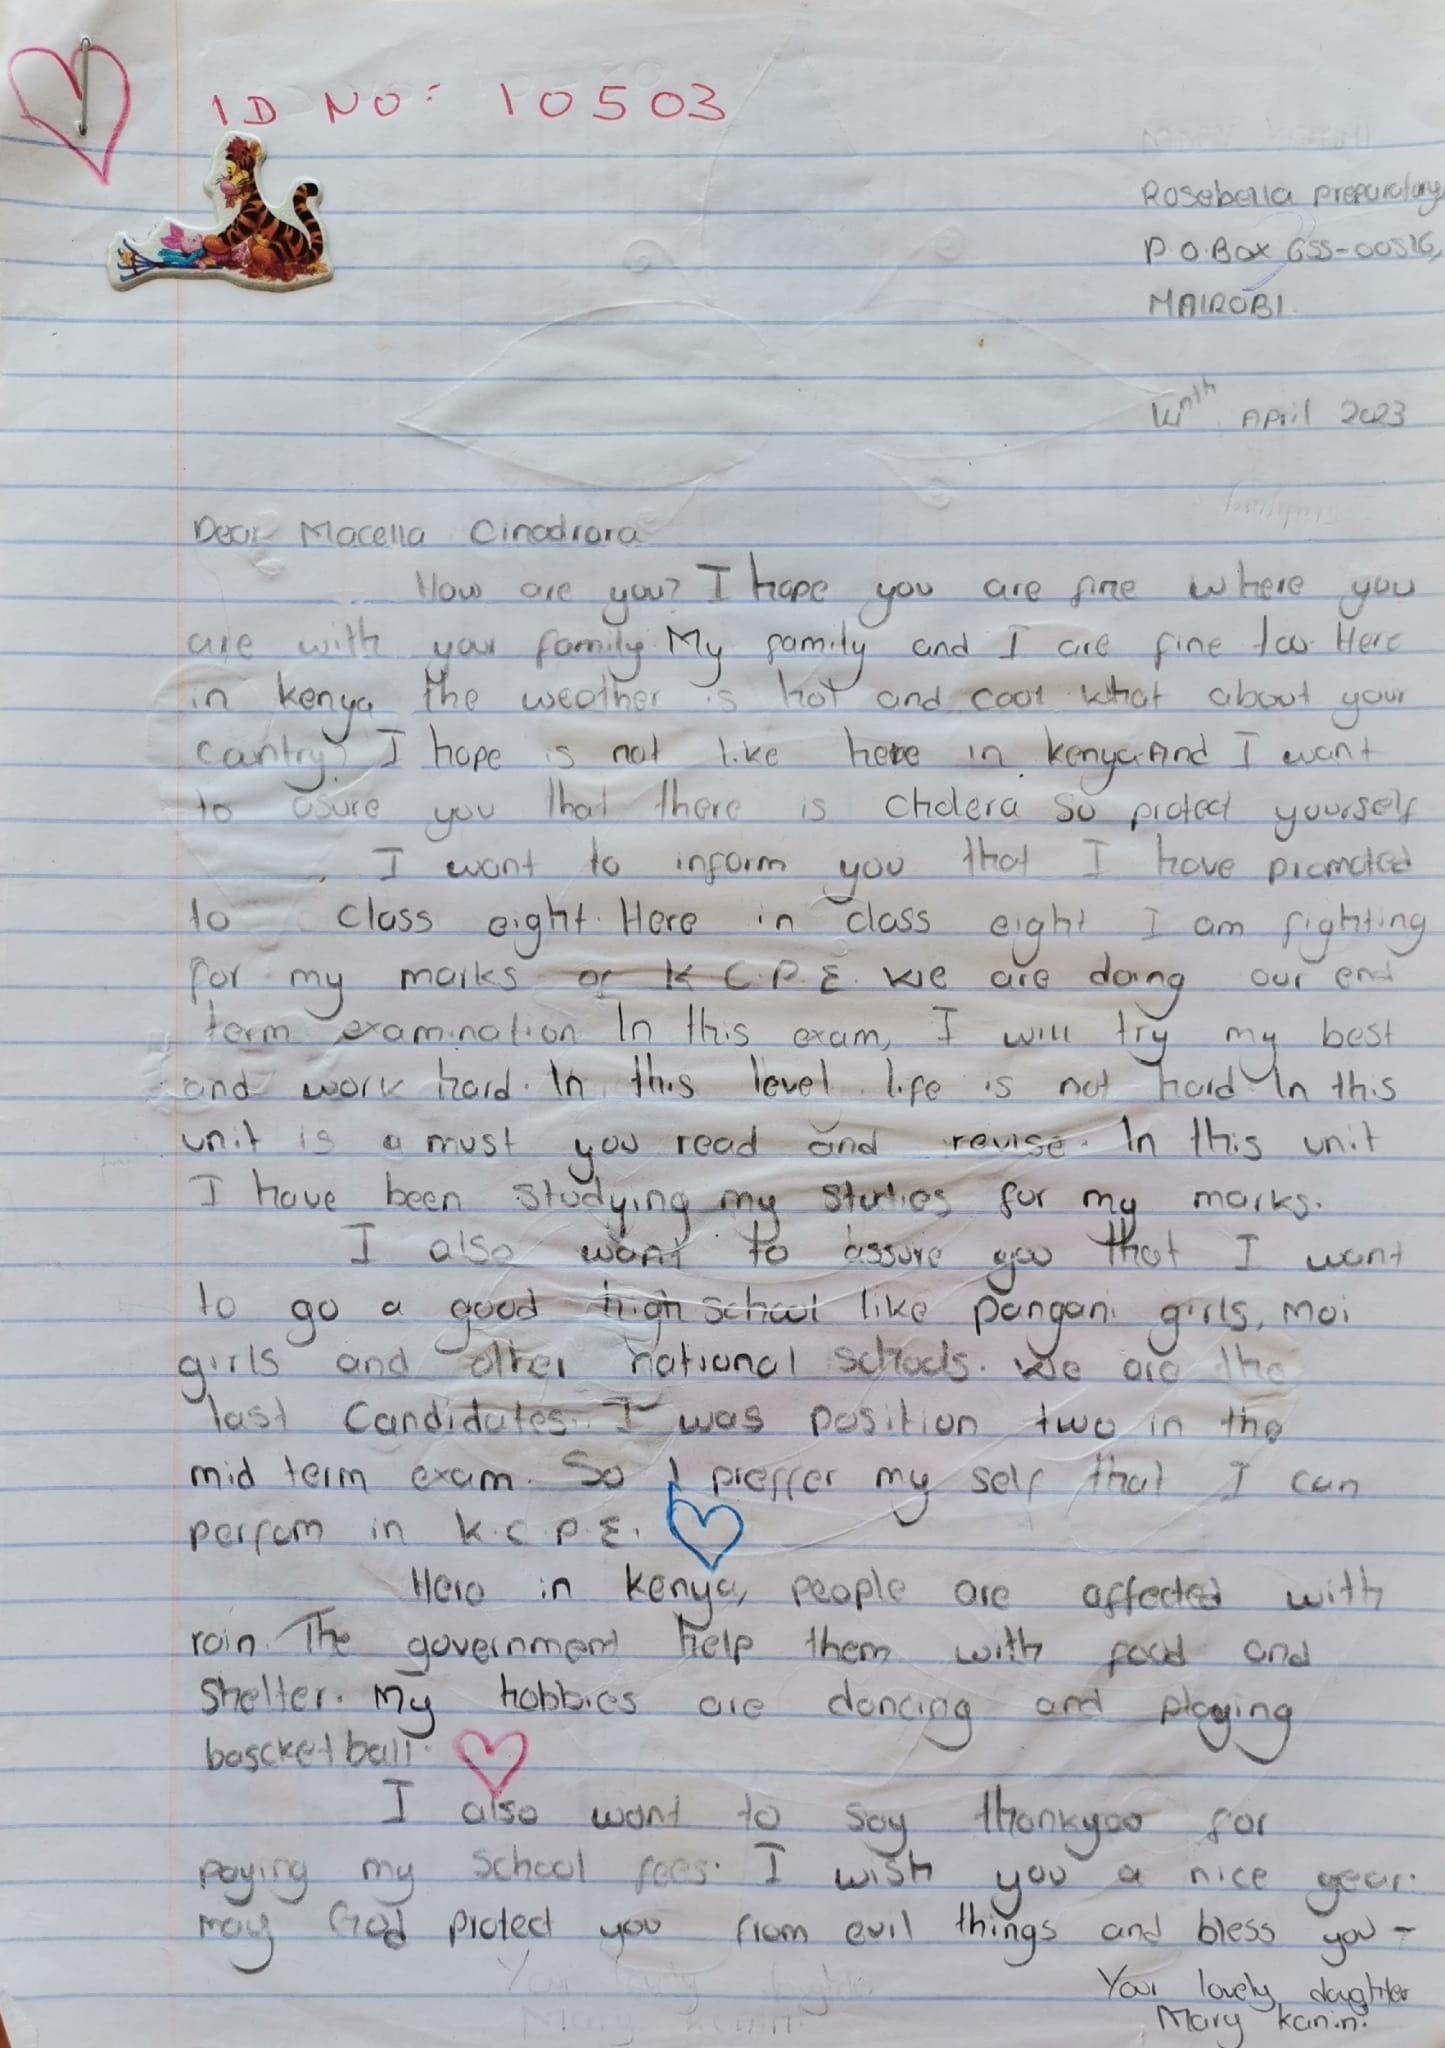 ID NO: 10503
Rosebella preparatory
P.O.Box 655-00516,
NAIROBI.
April 2023
Dear Macella Cinadrara
How are you? I hope you are fine where you
are with your family. My family and I are fine too. Here
in kenya the weather is hot and cool what about your
country? I hope is not like here in kenya. And I want
to asure you that there is cholera so protect yourself
I want to inform you that I have promoted
to class eight. Here in class eight I am fighting
for my marks of K.C.P.E. We are doing our end
term examination. In this exam, I will try my best
and work hard. In this level life is not hard. In this
unit is a must you read and revise. In this unit
I have been studying my studies for my marks.
I also want to assure you that I want
to go a good high school like pangani girls, moi
girls and other national schools. We are the
last candidates. I was position two in the
mid term exam. So I preffer my self that I can
perfom in K.C.P.E.
Here in kenya, people are affected with
rain. The government help them with food and
shelter. My hobbies are dancing and playing
bascketball.
I also want to say thankyou for
paying my school fees. I wish you a nice year.
may God protect you from evil things and bless you-
Your lovely daughter
Mary kanini.